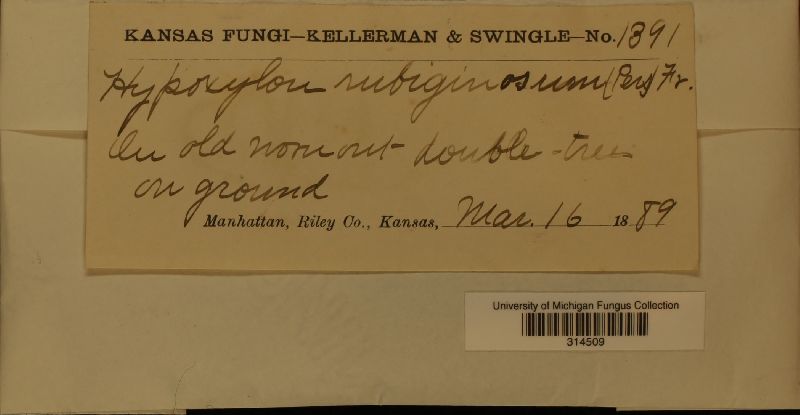 KANSAS FUNGI—KELLERMAN & SWINGLE—No. 1391
Hypoxylon rubiginosum (Pers) Fr.
On old worn out double-tree
on ground
Manhattan, Riley Co., Kansas, Mar. 16 1889
University of Michigan Fungus Collection
314509